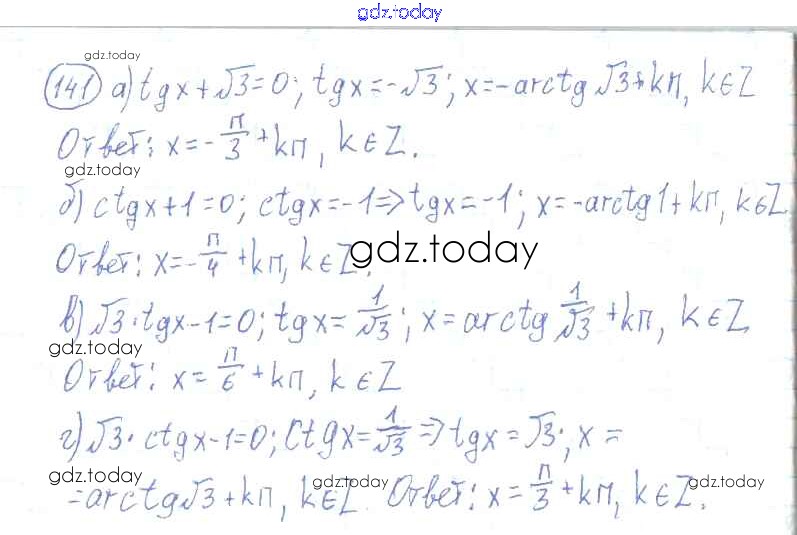 gdz.today
gdz.today
141 а) tgx+√3=0; tgx=-√3; x=-arctg √3+kπ, k∈Z
Ответ: x=-π/3+kπ, k∈Z.
gdz.today
б) ctgx+1=0; ctgx=-1⇒tgx=-1; x=-arctg1+kπ, k∈Z
Ответ: x=-π/4+kπ, k∈Z.
gdz.today
в) √3·tgx-1=0; tgx=1/√3; x=arctg 1/√3+kπ, k∈Z
gdz.today
Ответ: x=π/6+kπ, k∈Z
г) √3·ctgx-1=0; Ctgx=1/√3⇒tgx=√3; x=
gdz.today gdz.today gdz.today
=arctg√3+kπ, k∈Z. Ответ: x=π/3+kπ, k∈Z.